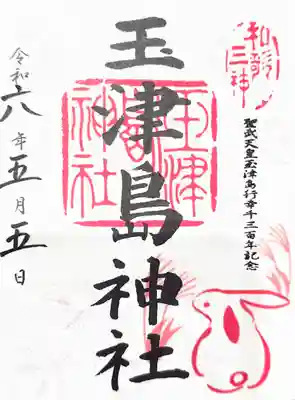 和歌
三神
聖武天皇玉津島行幸千三百年記念
玉津島神社
玉津
島
神社
令和六年五月五日